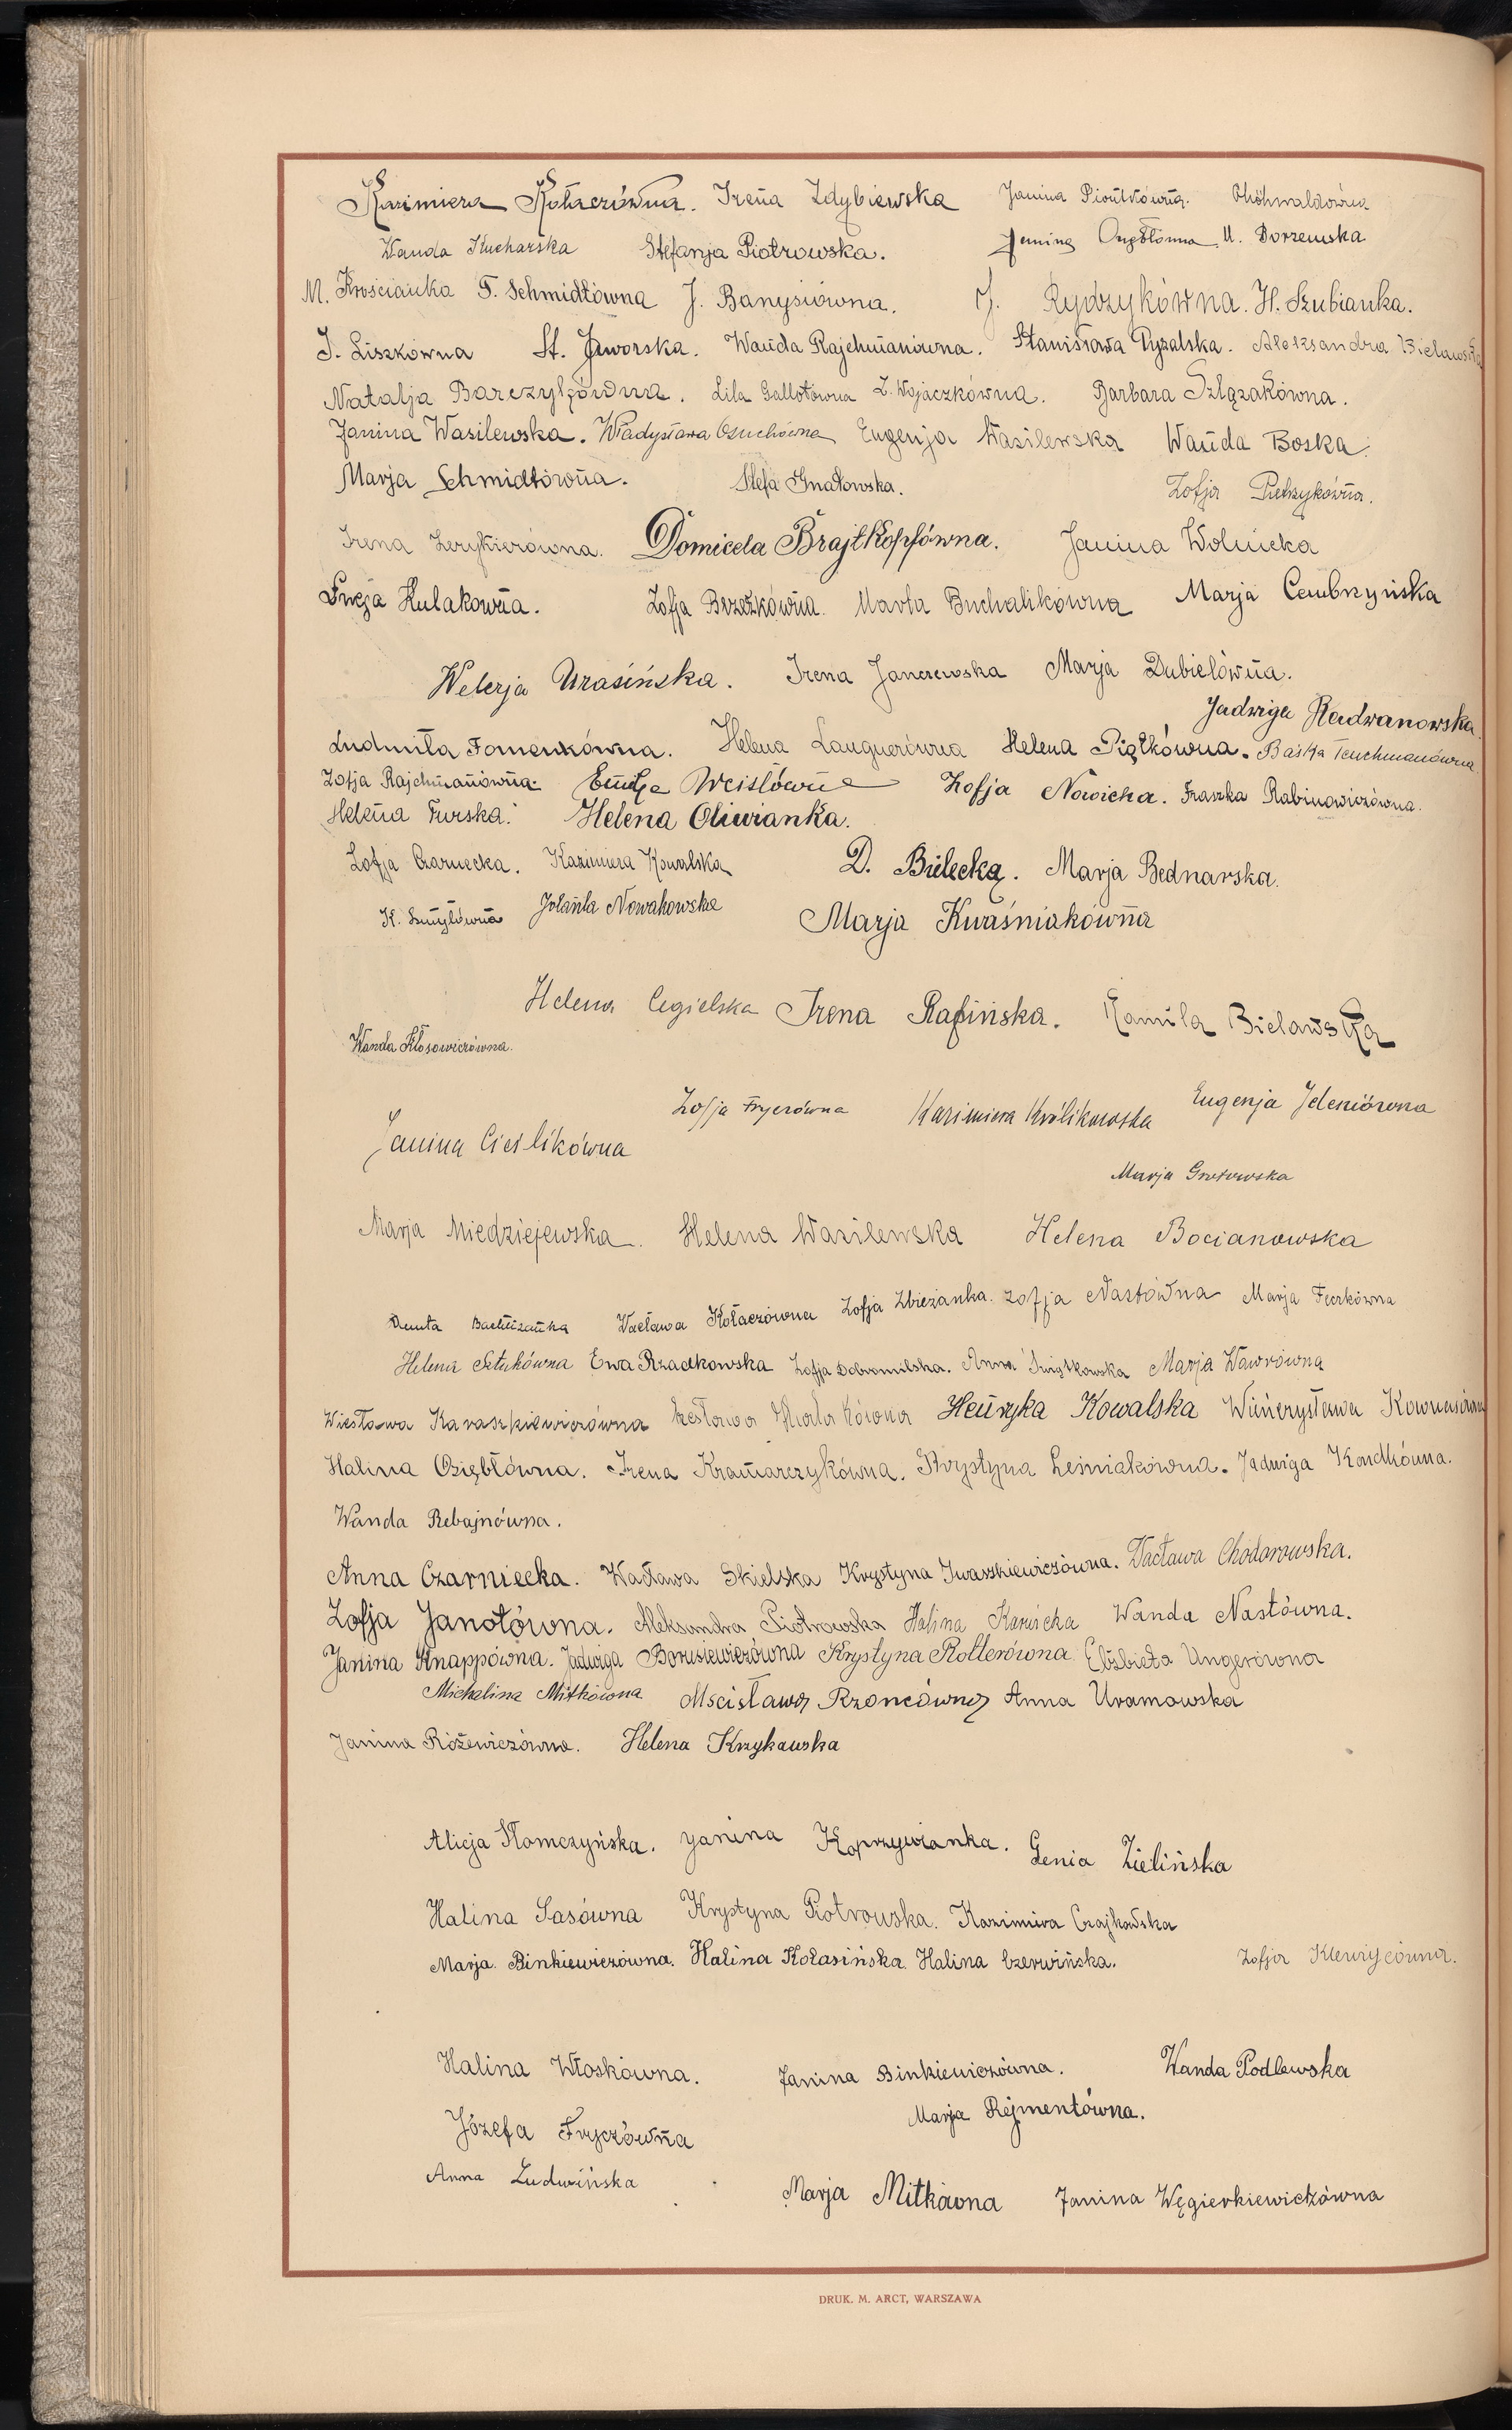 Kazimiera Kołaczówna. Irena Zdybiewska Janina Piontkówna.
Wanda Kucharska Stefanja Piotrowska. Janina U. Borzewska
M. Krościanka T. Schmidtówna J. Banysiówna. J. Rydzykówna. H. Szubianka.
J. Liszkówna St. Jaworska. Wanda Rajchmanówna. Stanisława Pyzalska. Aleksandra Bielawska
Natalja Barczykówna. Lila Gallotówna Z. Wojaczkówna. Barbara Szlązakówna.
Janina Wasilewska. Władysława Osuchówna Eugenja Wasilewska Wanda Boska.
Marja Schmidtówna. Stefa Gnatowska. Zofja Pietrzykówna.
Irena Domicela Brajtkopfówna. Janina Wolnicka
Łucja Kulakowna. Zofja Brzezkówna. Marta Buchalikówna Marja Cembrzyńska
Welerja Urasińska. Irena Janczewska Marja Dubielówna.
Jadwiga Radwanowska.
Ludmiła Fomenkówna. Helena Languerówna Helena Piątkówna. Baśka Teuchmanówna
Zofja Rajchmanówna. Weislówna Zofja Nowicka. Fraszka Rabinowiczówna.
Helena Turska. Helena Oliwianka.
Zofja Czarnecka. Kazimiera Kowalska D. Bielecka. Marja Bednarska.
K. Jolanta Nowakowska Marja Kwaśniakówna
Helena Cegielska Irena Rafińska. Kamila Bielawska
Wanda Kłosowiczówna.
Zofja Fryczówna Kazimiera Królikowska Eugenja Jeleniówna
Janina Cieślikówna
Marja Grotowska
Marja Miedziejewska. Helena Wasilewska Helena Bocianowska
Danuta Wacława Kołaczówna Zofja Zbieżanka. Zofja Nastówna Marja
Helena Sztukówna Ewa Rzadkowska Zofja Dobromilska. Anna Świątkowska Marja Wawrówna
Wiesława Karaszkiewiczówna Czesława Henryka Kowalska Wincrysława
Halina Oziębłówna. Irena Kramarczykówna. Krystyna Leśniakówna. Jadwiga Kondkówna.
Wanda Rebajnówna.
Anna Czarniecka. Wacława Skielska Krystyna Iwaszkiewiczówna. Wacława Chodorowska.
Zofja Janotówna. Aleksandra Piotrowska Halina Karnicka Wanda Nastówna.
Janina Knappówna. Jadwiga Borusiewiczówna Krystyna Rotterówna Elżbieta Ungerówna
Michalina Mitkówna Mscisława Rzoncówna Anna Uramowska
Janina Różewiczówna. Helena Krzykawska
Alicja Słomczyńska. Janina Koprzywianka. Genia Zielińska
Halina Sasówna Krystyna Piotrowska. Kazimiera Czajkowska
Marja Binkiewiczówna. Halina Kołasińska. Halina Czerwińska. Zofja
Halina Włoskówna. Janina Binkiewiczówna. Wanda Podlewska
Józefa Fryczówna Marja Rejmentówna.
Anna Ludwińska Marja Mitkówna Janina Węgierkiewiczówna
DRUK. M. ARCT, WARSZAWA